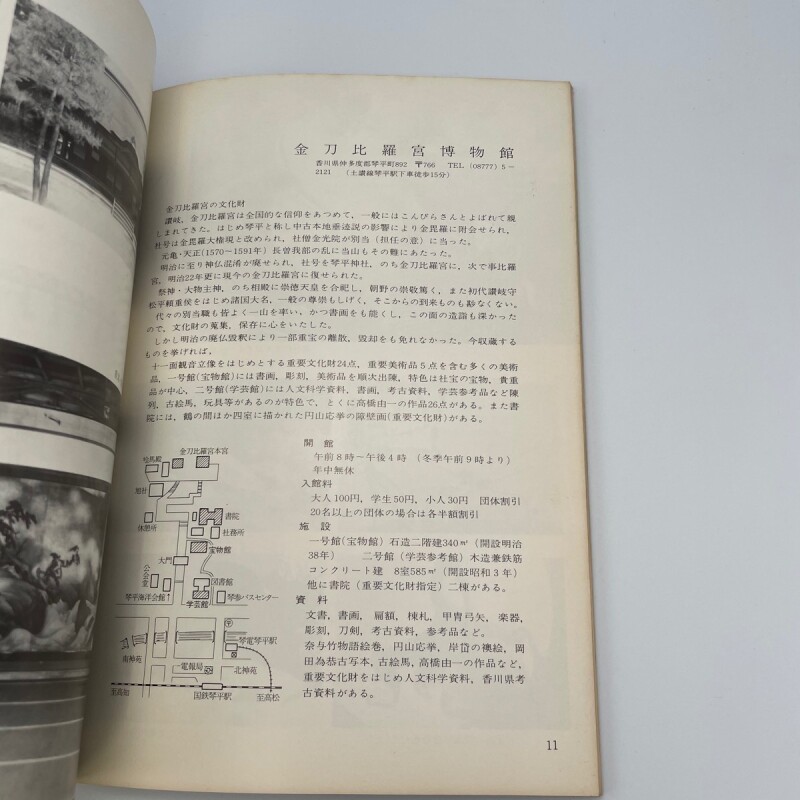 金刀比羅宮博物館
香川県仲多度郡琴平町892 〒766 TEL (08777) 5－
2121 (土讃線琴平駅下車徒歩15分)
金刀比羅宮の文化財
讃岐，金刀比羅宮は全国的な信仰をあつめて，一般にはこんぴらさんとよばれて親
しまれてきた。はじめ琴平と称し中古本地垂迹説の影響により金毘羅に附会せられ，
社号は金毘羅大権現と改められ，社僧金光院が別当（担任の意）に当った。
元亀・天正(1570～1591年) 長曽我部の乱に当山もその難にあたった。
明治に至り神仏混淆が廃せられ，社号を琴平神社，のち金刀比羅宮に，次で事比羅
宮，明治22年更に現今の金刀比羅宮に復せられた。
祭神・大物主神，のち相殿に崇徳天皇を合祀し，朝野の崇敬篤く，また初代讃岐守
松平頼重侯をはじめ諸国大名，一般の尊崇もしげく，そこからの到来ものも尠なくない。
代々の別当職も皆よく一山を率い，かつ書画をも能くし，この面の造詣も深かった
ので，文化財の蒐集，保存に心をいたした。
しかし明治の廃仏毀釈により一部重宝の離散，毀却をも免れなかった。今収蔵する
ものを挙げれば，
十一面観音立像をはじめとする重要文化財24点，重要美術品5点を含む多くの美術
品，一号館(宝物館)には書画，彫刻，美術品を順次出陳，特色は社宝の宝物，貴重
品が中心，二号館(学芸館)には人文科学資料，書画，考古資料，学芸参考品など陳
列，古絵馬，玩具等があるのが特色で，とくに高橋由一の作品26点がある。また書
院には，鶴の間ほか四室に描かれた円山応挙の障壁画(重要文化財)がある。
開　館
午前8時～午後4時　(冬季午前9時より)
年中無休
入館料
大人100円，学生50円，小人30円　団体割引
20名以上の団体の場合は各半額割引
施　設
一号館(宝物館) 石造二階建340㎡ (開設明治
38年)　　二号館 (学芸参考館) 木造兼鉄筋
コンクリート建　8室585㎡ (開設昭和3年)
他に書院 (重要文化財指定) 二棟がある。
資　料
文書，書画，扁額，棟札，甲冑弓矢，楽器，
彫刻，刀剣，考古資料，参考品など。
奈与竹物語絵巻，円山応挙，岸岱の襖絵，岡
田為恭古写本，古絵馬，高橋由一の作品など，
重要文化財をはじめ人文科学資料，香川県考
古資料がある。
金刀比羅宮本宮
絵馬殿
旭社
書院
休憩所
社務所
宝物館
大門
公会堂
図書館
琴平海洋会館↑
学芸館
琴参バスセンター
〒
琴電琴平駅
南神苑
電報局
北神苑
至高知
国鉄琴平駅
至高松
11